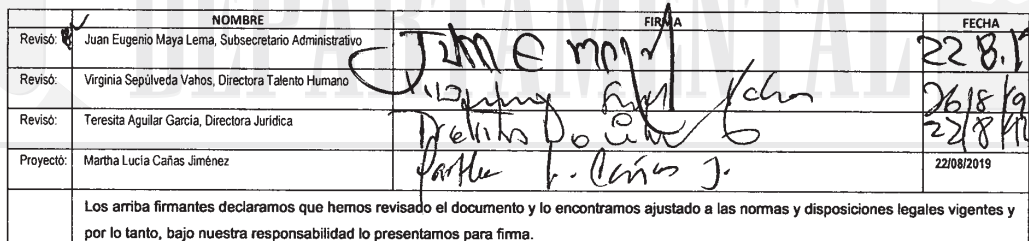 DEPARTAMENTAL
NOMBRE FIRMA FECHA
Revisó: Juan Eugenio Maya Lema, Subsecretario Administrativo Juan E Maya 22 8.19
Revisó: Virginia Sepúlveda Vahos, Directora Talento Humano 26/8/19
Revisó: Teresita Aguilar García, Directora Jurídica 22/8/19
Proyectó: Martha Lucía Cañas Jiménez Martha L. Cañas J. 22/08/2019
Los arriba firmantes declaramos que hemos revisado el documento y lo encontramos ajustado a las normas y disposiciones legales vigentes y
por lo tanto, bajo nuestra responsabilidad lo presentamos para firma.